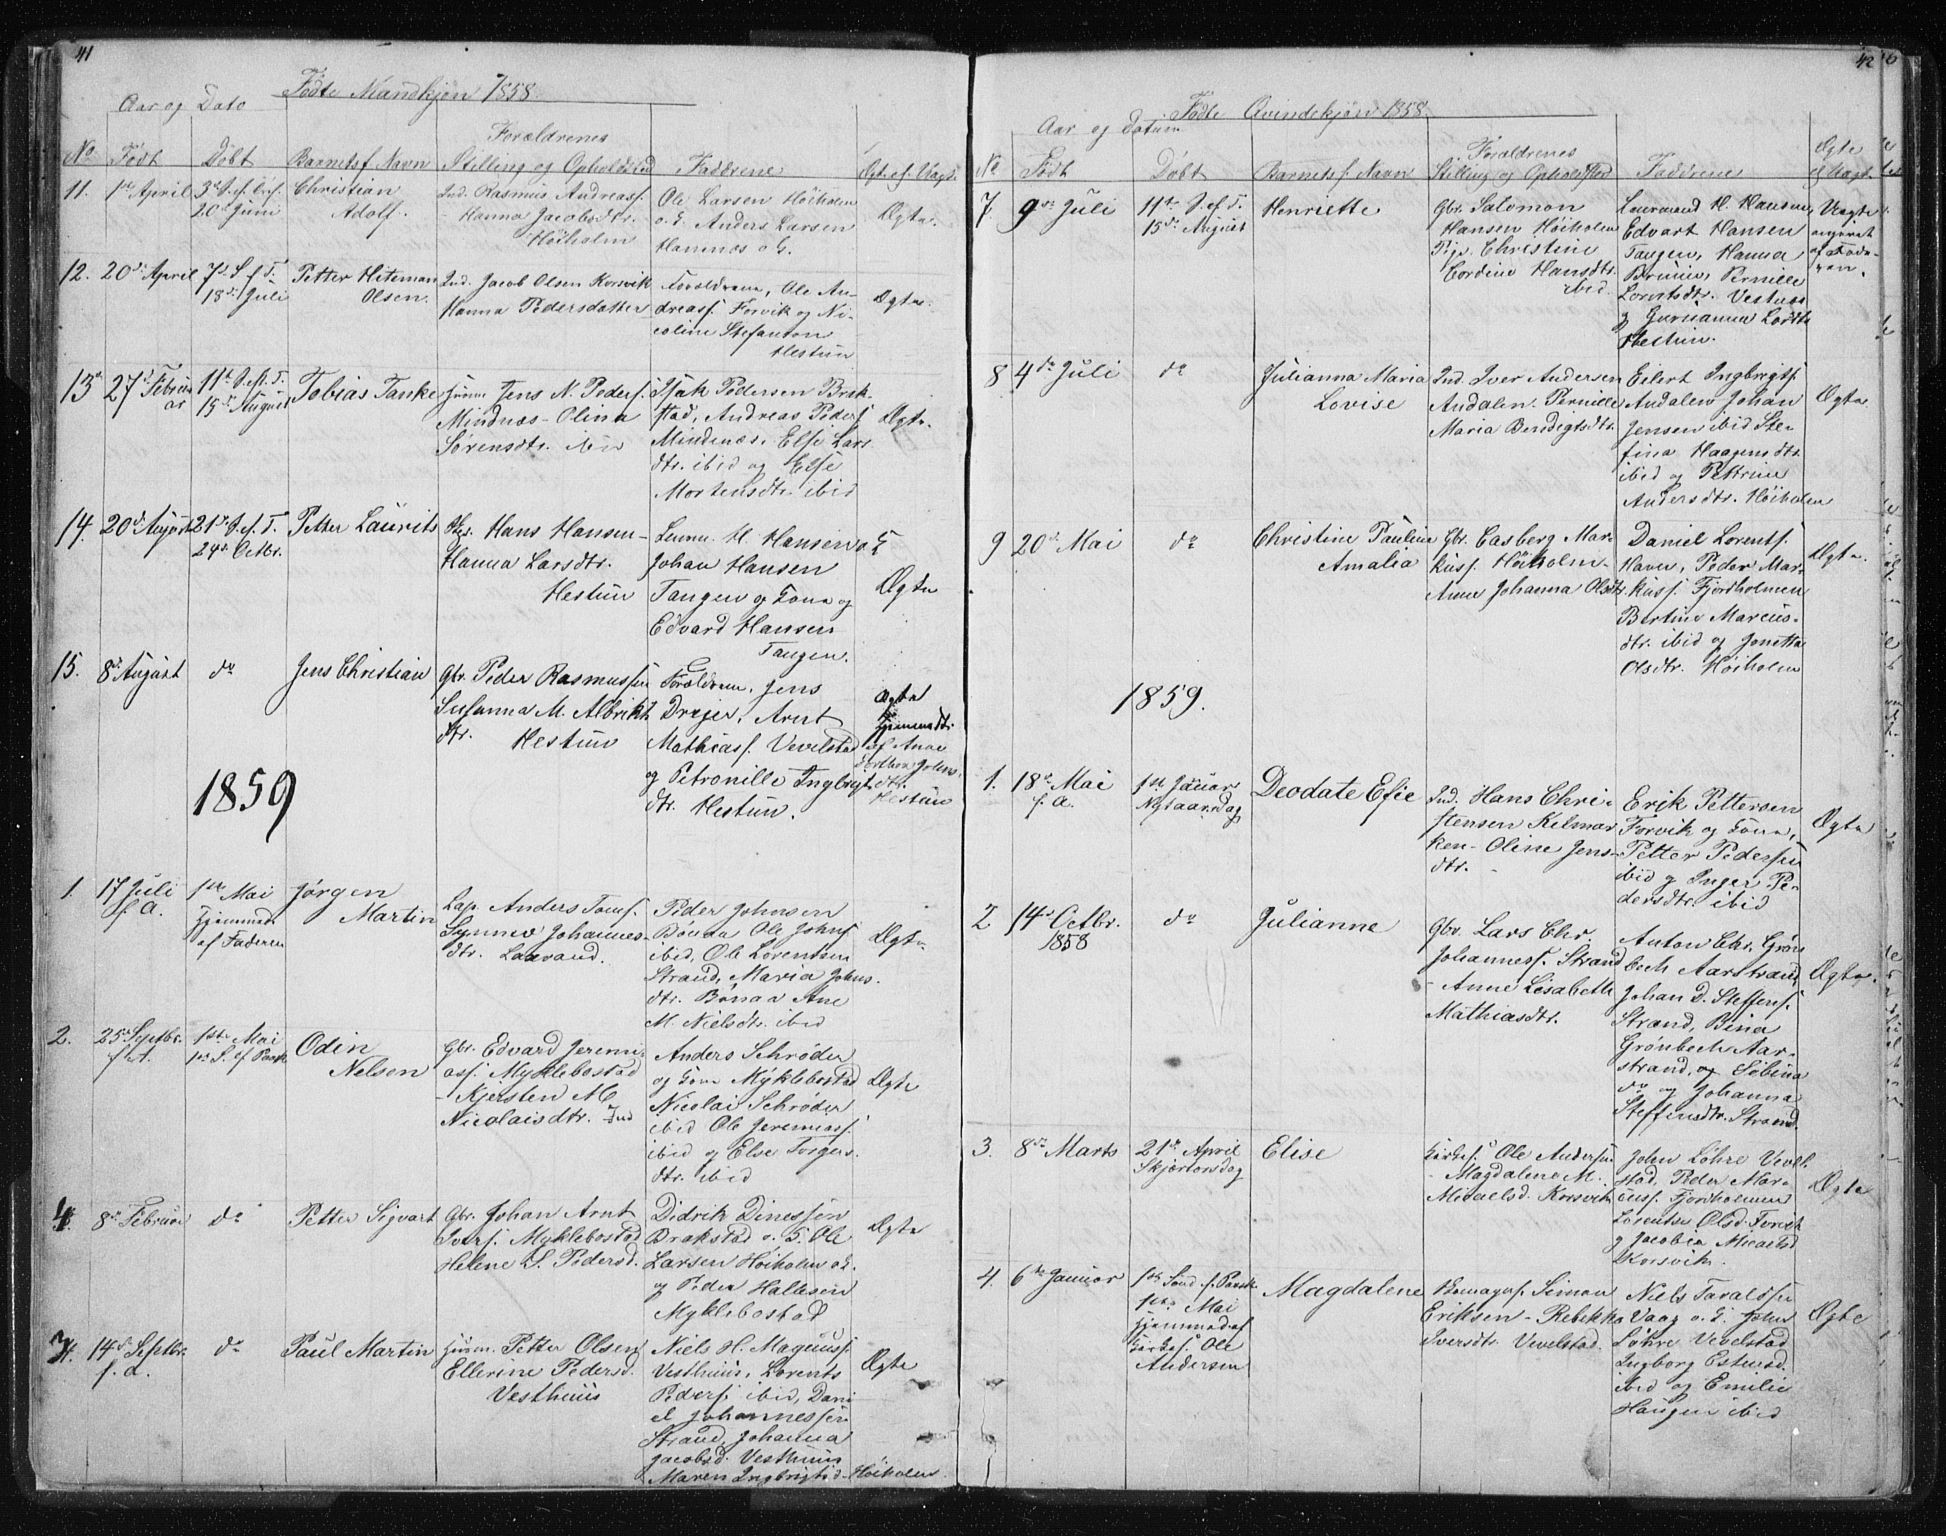 41
Fødte Mandkjøn 1858.
Aar og Dato
Forældrenes
No Født Døbt Barnets Navn Stilling og Opholdsted Faddrene Ægte el. Uægt.
11. 1ste April 20de Juni Christian Adolf.
Ind. Rasmus Andreass.
Hanna Jacobsdtr.
Høiholm
Ole Larsen Høiholm
o. G. Anders Larsen
Hamnæs o G.
Ægte.
12. 20de April 7de S. e. T.
18de Juli
Petter Hiteman
Olsen.
Ind. Jacob Olsen Korsvik
Hanna Pedersdatter
Forældrene, Ole An-
dreass. Forvik og Ni-
coline Stefanson
Hestun
Ægte.
13. 27de Februar
11te S. e. T.
15de August
Tobias Tanke
Jens N. Peders.
Mindnæs - Olina
Sørensdtr. ibid
Isak Pedersen Brak-
stad, Andreas Peders.
Mindnæs, Else Lars
dtr. ibid og Else
Mortensdtr. ibid
Ægte.
14. 20de August 21de S. e. T.
24de Octbr.
Petter Laurits
Hans Hansen -
Hanna Larsdtr.
Hestun
H. Hansen o G
Johan Hansen
Tangen og Kone og
Edvard Hansen
Tangen.
Ægte
15. 8de August do Jens Christian
Gbr. Peder Rasmussen
Susanna M. Albrikt
dtr. Hestun
Forældrene, Jens
Dreier, Arnt
Mathiass. Vevelstad
og Petronille Ingbrigt
dtr. Hestun.
Ægte
Hjemmedt.
af Ane
Dorthea Johns.
dtr.
Hestun
1859
1. 17 Juli
f. A.
1ste Mai
Hjemmed.
af Faderen
Jørgen
Martin
Lap. Anders Toms.
Synnev Johannes-
dtr. Laavand.
Peder Johnsen
Bønaa Ole Johns.
ibid, Ole Lorentsen
Strand, Maria Johns.
dtr. Bønaa Ane
M. Nielsdtr. ibid
Ægte
2. 25de Septbr.
f. A.
1ste Mai
1ste S. ef Paask
Odin
Nelsen
Gbr. Edvard Jeremi-
ass. Myklebostad
- Kjersten M
Nicolaisdtr. Ind
Anders Schrøder
og Kone Myklebostad
Nicolai Schrøder
ibid Ole Jeremiass.
ibid og Else Torgers.
dtr. ibid
Ægte
4. 8de Februar do Petter Sigvart
Gbr. Johan Arnt
Ivers. Myklebostad
Helene S. Pedersd.
Didrik Dinessen
Brakstad o. G. Ole
Larsen Høiholm o G.
og Peder Hallesen
Myklebostad
Ægte
3. 14de Septbr.
f. A.
do Paul Martin
Petter Olsen
Ellerine Pedersd.
Vesthuus
Niels H. Magnuss.
Vesthuus, Lorents
Peders. ibid, Dani
el Johannessen
Strand, Johanna
Jacobsd. Vesthuus
Maren Ingbrigtsd. Høiholm.
Ægte
42
Fødte Qvindekjøn 1858.
Aar og Datum
Forældrenes
No Født Døbt Barnets Navn Stilling og Opholdsted Faddrene Ægte el Uægt.
7. 9de Juli 11te S. ef. T.
15de August
Henriette
Gbr. Salomon
Hansen Høiholm
Pige. Christine
Cordine Hansdtr.
ibid
H. Hansen,
Edvart Hansen
Tangen, Hanna
Pernille
Lorntsdtr. Vestnes
Hestun.
Uægte
angivet
af Fade-
ren.
8 4de Juli do Julianna Maria
Lovise
Ind. Iver Andersen
Andalen. Pernille
Maria Bendigtsdtr.
Eilert Ingbrigts.
Andalen Johan
Jensen ibid Ste-
fina Haagensdtr.
ibid og Pettrine
Andersdtr. Høiholm
Ægte
9 20de Mai do Christine Pauline
Amalia
Gbr. Easberg Mar-
kuss. Høiholm -
Anne Johanna Olsdtr.
Daniel Lorents.
Havn, Peder Mar-
kuss. Fjordholmen
Bertine Marcus-
dtr. ibid og Jonetta
Olsdtr. Høiholm
Ægte.
1859.
1. 18de Mai
f. A.
1ste Januar
Nytaarsdag
Deodate Efie
Ind. Hans Chri-
stensen Kilmar
ken - Oline Jens-
dtr.
Erik Pettersen
Forvik og Kone,
Petter Pedersen
ibid og Inger Pe-
dersdtr. ibid
Ægte
2 14de Octbr.
1858
do Julianne
Gbr. Lars Chr.
Johanness. Strand
- Anne Lisabeth
Mathiasdtr.
Anton Chr. Grøn
bech Aarstrand,
Johan D. Steffens.
Strand, Bina
Grønbech Aar-
strand, og Sibina
do og Johanna
Steffensdtr. Strand.
Ægte.
3. 8de Marts 21de April
Skjærtorsdag
Elise
Kirkes. Ole Andersen
- Magdalene M.
Micaelsd. Korsvik
John Løhre Vevel-
stad, Peder Mar-
cuss. Fjordholmen
Lorentse Olsd. Forvik
og Jacobia Micaelsd
Korsvik.
Ægte
4. 6te Januar
1ste Sønd. ef. Paask.
1ste Mai
Hjemmed af
Kirkes. Ole
Andersen
Magdalene
Simon
Eriksen - Rebekka
Iversdtr. Vevelstad.
Niels Taralsen
Vaag o. G. John
Løhre Vevelstad
Ingborg Estensd.
ibid og Emilie
Haugen ibid
Ægte